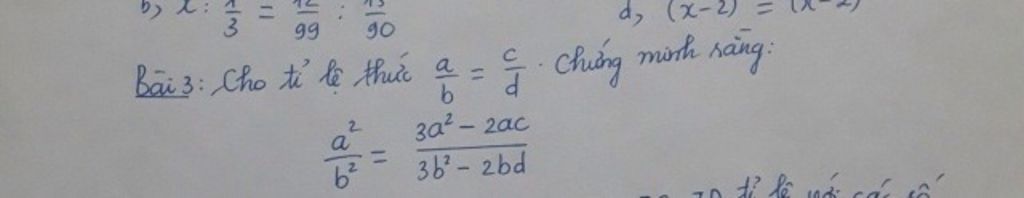 b, x : 1/3 = 12/99 : 15/90
d, (x-2) = (x-2)
Bài 3: Cho tỉ lệ thức a/b = c/d. Chứng minh rằng:
a²/b² = (3a² - 2ac)/(3b² - 2bd)
tỉ lệ với các số